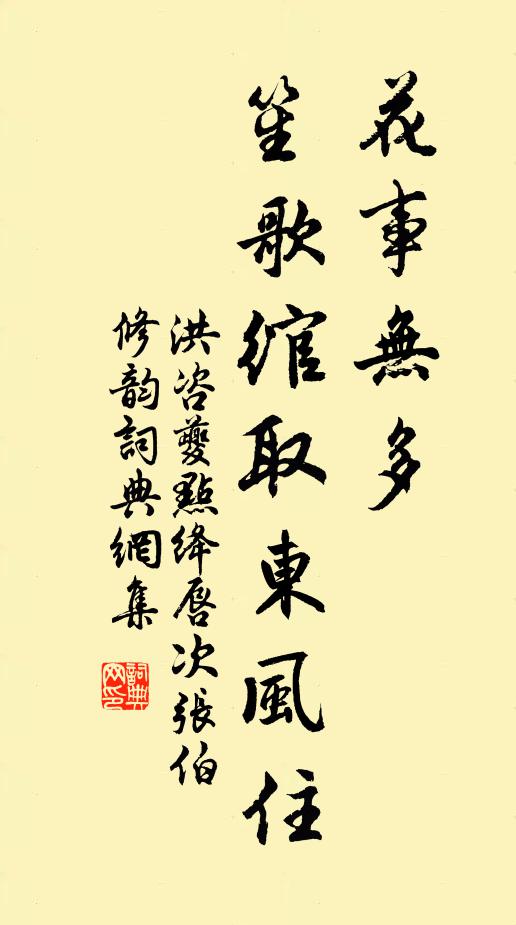 花事無多
笙歌綰取東風住
洪咨夔點絳唇次張伯
修韵詞典網集
詞典网印